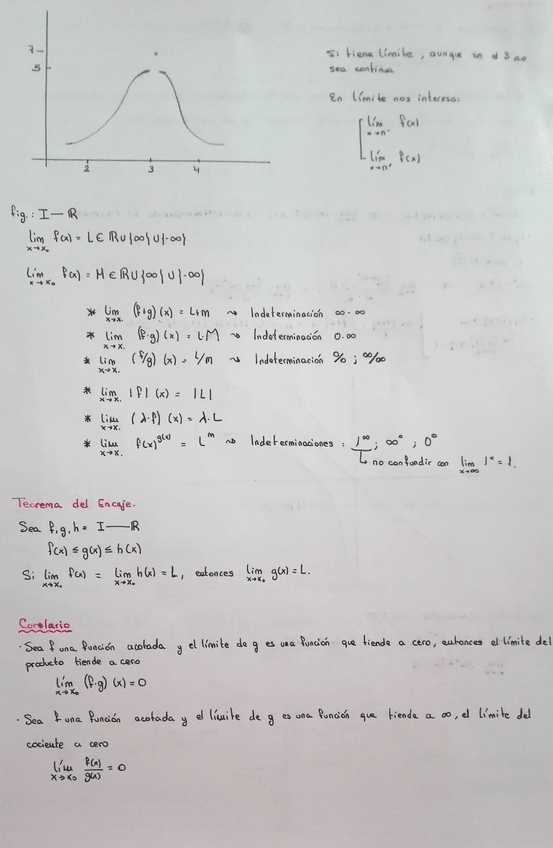 7
5
2 3 4
Si tiene límite, aunque en el 3 no
sea continua
En límite nos interesa:
lím f(x)
x→n⁻
lím f(x)
x→n⁺
f,g: I — R
lím f(x) = L ∈ R U {∞} U {-∞}
x→x₀
lím f(x) = M ∈ R U {∞} U {-∞}
x→x₀
* lím (f+g)(x) = L+m ⤳ Indeterminación ∞-∞
x→x₀
* lím (f·g)(x) = L·M ⤳ Indeterminación 0·∞
x→x₀
* lím (f/g)(x) = L/m ⤳ Indeterminación 0/0 ; ∞/∞
x→x₀
* lím |f|(x) = |L|
x→x₀
* lím (λ·f)(x) = λ·L
x→x₀
* lím f(x)^g(x) = L^m ⤳ Indeterminaciones: 1^∞ ; ∞^0 ; 0^0
x→x₀
no confundir con lím 1^x = 1.
x→∞
Teorema del Encaje.
Sea f,g,h = I — R
f(x) ≤ g(x) ≤ h(x)
Si lím f(x) = lím h(x) = L, entonces lím g(x) = L.
x→x₀ x→x₀ x→x₀
Corolario
· Sea f una función acotada y el límite de g es una función que tiende a cero, entonces el límite del
producto tiende a cero
lím (f·g)(x) = 0
x→x₀
· Sea f una función acotada y el límite de g es una función que tiende a ∞, el límite del
cociente a cero
lím f(x)/g(x) = 0
x→x₀